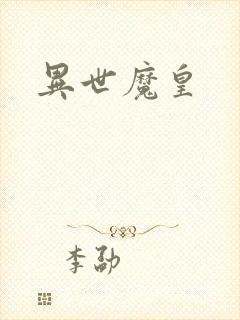 異世魔皇
李劭